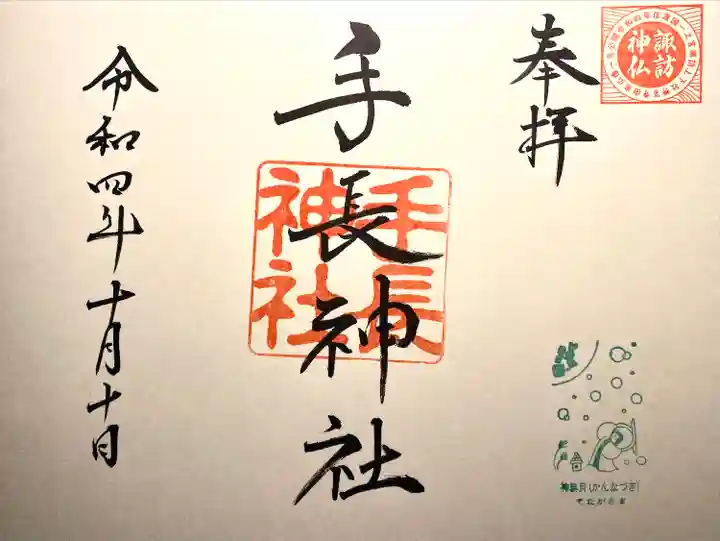 奉拝
諏訪
神仏
手長神社
手長
神社
令和四年十月十日
神無月(かんなづき)
てながさま